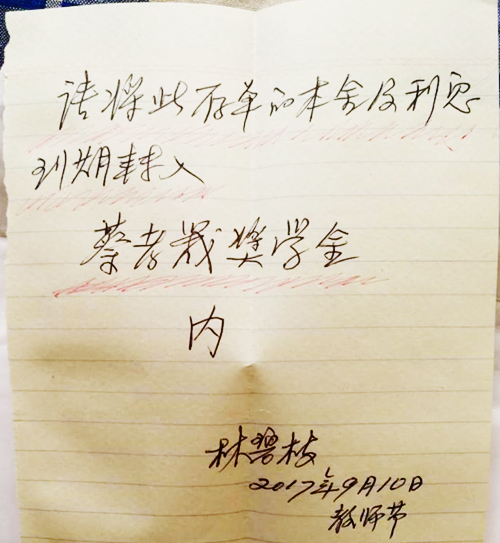 请将此存单的本金及利息
到期转入
蔡孝戬奖学金
内
林碧枝
2017年9月10日
教师节